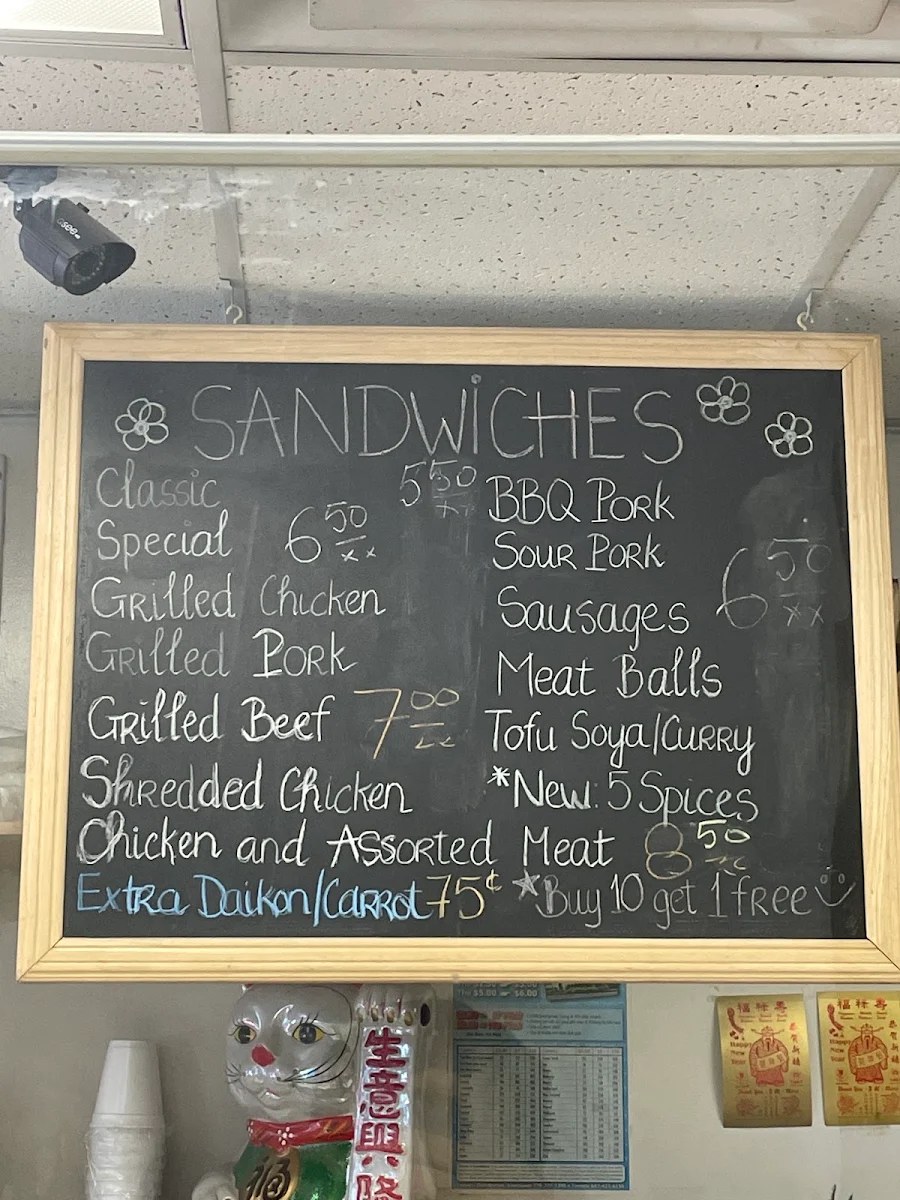 Qsee
SANDWiCHES
Classic 5 50
Special 6 50 xx
Grilled Chicken
Grilled Pork
Grilled Beef 7 00
Shredded Chicken
BBQ Pork
Sour Pork
Sausages 6 50 xx
Meat Balls
Tofu Soya/Curry
*New: 5 Spices
Chicken and Assorted Meat 8 50
Extra Daikon/Carrot 75¢
*Buy 10 get 1 free
$5.00 $6.00
生意興隆
福
福祿壽
恭賀新禧
Happy New Year
福祿壽
恭賀新禧
Happy New Year